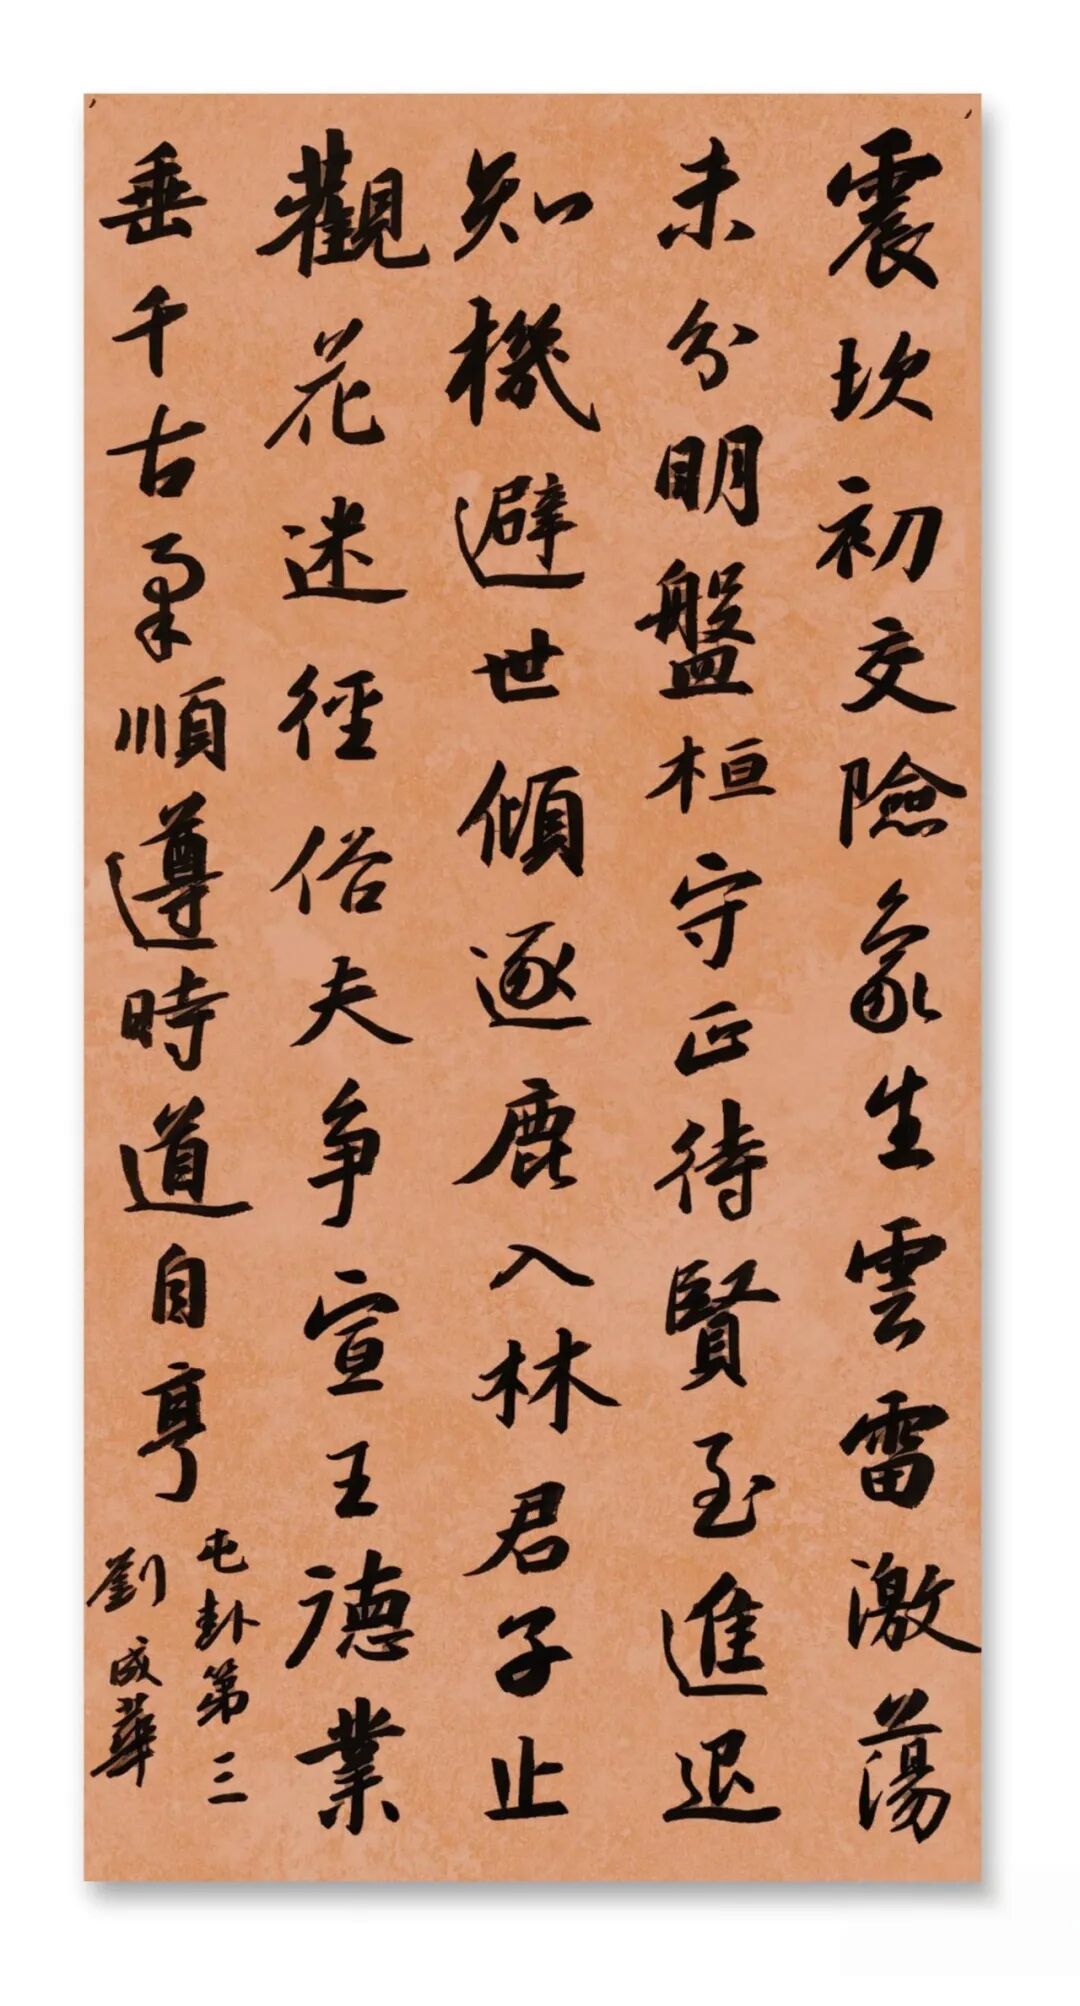 震坎初交險象生雲雷激蕩
未分明盤桓守正待賢至進退
知機避世傾逐鹿入林君子止
觀花迷徑俗夫争宣王德業
垂千古柔順遵時道自亨
屯卦第三
劉成華